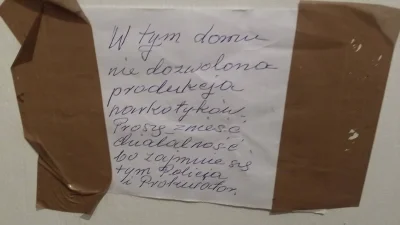 W tym domu
nie dozwolona
produkcja
narkotyków.
Proszę znieść
działalność
bo zajmie się
tym Policja
i Prokurator.